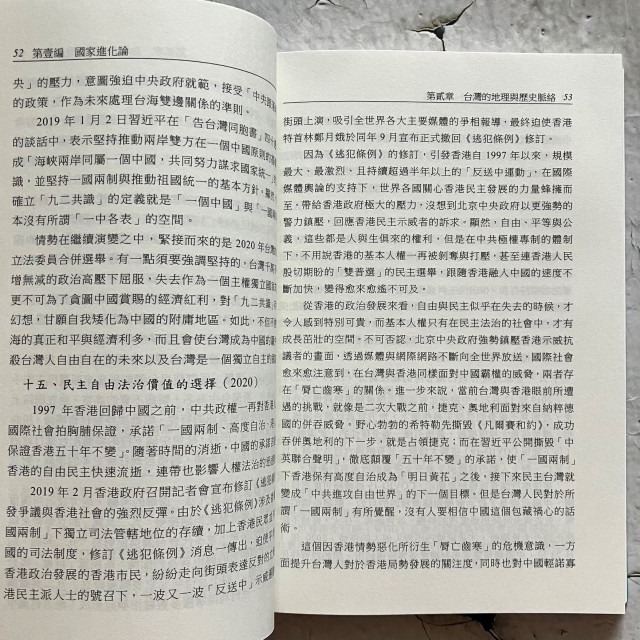 52 第壹編 國家進化論
央」的壓力，意圖強迫中央政府就範，接受「中央
的政策，作為未來處理台海雙邊關係的準則。
2019 年 1 月 2 日習近平在「告台灣同胞書」四十
的談話中，表示堅持推動兩岸雙方在一個中國原則的
成「海峽兩岸同屬一個中國，共同努力謀求國家統一
識，並堅持一國兩制與推動祖國統一的基本方針，
確立「九二共識」的定義就是「一個中國」與「一國
本沒有所謂「一中各表」的空間。
情勢在繼續演變之中，緊接而來的是 2020 年台灣
立法委員合併選舉。有一點須要強調堅持的，台灣不
增無減的政治高壓下屈服，失去作為一個主權獨立國
更不可為了貪圖中國賞賜的經濟紅利，對「九二共識」
幻想，甘願自我矮化為中國的附庸地區。如此，不但
海的真正和平與經濟利多，而且會使台灣成為中國的
殺台灣人自由自在的未來以及台灣是一個獨立自主的
十五、民主自由法治價值的選擇（2020）
1997 年香港回歸中國之前，中共政權一再對香
國際社會拍胸脯保證，承諾「一國兩制、高度自治、港
保證香港五十年不變」。隨著時間的消逝，中國的承諾
香港的自由民主快速流逝，連帶也影響人權法治的
2019 年 2 月香港政府召開記者會宣布修訂《逃犯
發爭議與香港社會的強烈反彈。由於《逃犯條例》涉及
國兩制」下獨立司法管轄地位的存續，加上香港民眾
國的司法制度，修訂《逃犯條例》消息一傳出，迫使
香港政治發展的香港市民，紛紛走向街頭表達反對的
港民主派人士的號召下，一波又一波「反送中」示威
第貳章 台灣的地理與歷史脈絡 53
街頭上演，吸引全世界各大主要媒體的爭相報導，最終迫使香港
特首林鄭月娥於同年 9 月宣布正式撤回《逃犯條例》修訂。
因為《逃犯條例》的修訂，引發香港自 1997 年以來，規模
最大、最激烈、且持續超過半年以上的「反送中運動」，在國際
媒體輿論的支持下，世界各國關心香港民主發展的力量蜂擁而
至，帶給香港政府極大的壓力，沒想到北京中央政府以更強勢的
警力鎮壓，回應香港民主示威者的訴求。顯然，自由、平等與公
義，這些都是人與生俱來的權利，但是在中共極權專制的體制
下，不用說香港的基本人權一再被剝奪與打壓，甚至連香港人民
殷切期盼的「雙普選」的民主選舉，跟隨香港融入中國的速度不
斷加快，變得愈來愈遙不可及。
從香港的政治發展來看，自由與民主似乎在失去的時候，才
令人感到特別可貴，而基本人權只有在民主法治的社會中，才有
成長茁壯的空間。不可否認，北京中央政府強勢鎮壓香港示威抗
議者的畫面，透過媒體與網際網路不斷向全世界放送，國際社會
愈來愈注意到，在台灣與香港同樣面對中國霸權的威脅，兩者存
在一種「脣亡齒寒」的關係。進一步來說，當前台灣與香港眼前所遭
遇的挑戰，就像是二次大戰之前，捷克、奧地利面對來自納粹德
國的併吞威脅。野心勃勃的希特勒先撕毀《凡爾賽和約》，成功
吞併奧地利的下一步，就是占領捷克；而在習近平公開撕毀「中
英聯合聲明」，徹底顛覆「五十年不變」的承諾，使「一國兩制」
下香港保有高度自治成為「明日黃花」之後，接下來民主台灣就
變成「中共進攻自由世界」的下一個目標，但是台灣人民對於所
謂「一國兩制」有所覺醒，沒有人要相信中國這個包藏禍心的話
術。
這個因香港情勢惡化所衍生「脣亡齒寒」的危機意識，一方
面提升台灣人對於香港局勢發展的關注度，同時也對中國輕諾寡